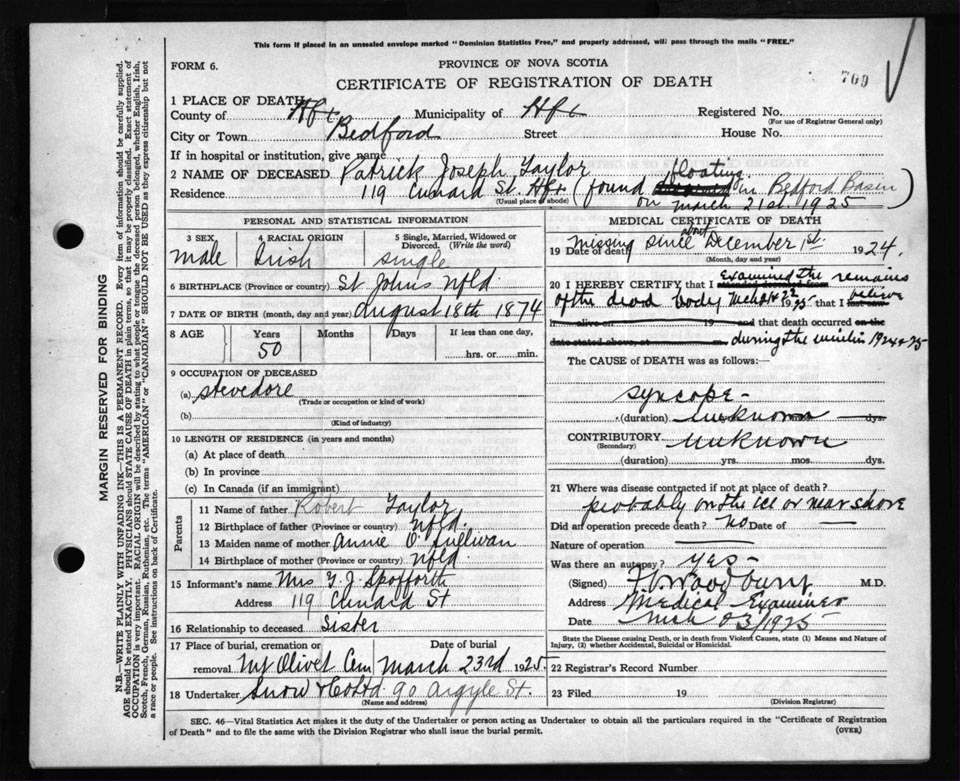 This form if placed in an unsealed envelope marked "Dominion Statistics Free," and properly addressed, will pass through the mails "FREE."
FORM 6.
PROVINCE OF NOVA SCOTIA
709
CERTIFICATE OF REGISTRATION OF DEATH
1 PLACE OF DEATH
County of Hfx Municipality of Hfx Registered No.
(For use of Registrar General only)
City or Town Bedford Street House No.
If in hospital or institution, give name
2 NAME OF DECEASED Patrick Joseph Taylor floating
Residence 119 Cunard St. Hfx (found in Bedford Basin)
(Usual place of abode) on March 21st 1925
PERSONAL AND STATISTICAL INFORMATION
3 SEX
male
4 RACIAL ORIGIN
Irish
5 Single, Married, Widowed or Divorced. (Write the word)
single
6 BIRTHPLACE (Province or country) St. Johns Nfld
7 DATE OF BIRTH (month, day and year) August 18th 1874
8 AGE Years Months Days If less than one day,
50 hrs. or min.
9 OCCUPATION OF DECEASED
(a) stevedore
(Trade or occupation or kind of work)
(b)
(Kind of industry)
10 LENGTH OF RESIDENCE (in years and months)
(a) At place of death
(b) In province
(c) In Canada (if an immigrant)
Parents
11 Name of father Robert Taylor
12 Birthplace of father (Province or country) Nfld.
13 Maiden name of mother Annie O'Sullivan
14 Birthplace of mother (Province or country) Nfld.
15 Informant's name Mrs Y. J. Spofforth
Address 119 Cunard St
16 Relationship to deceased Sister
17 Place of burial, cremation or removal Date of burial
Mt Olivet Cem March 23rd 1925
18 Undertaker Snow & Co Ltd. 90 Argyle St.
(Name and address)
MEDICAL CERTIFICATE OF DEATH
about
19 Date of death missing since December 1st. 1924.
(Month, day and year)
20 I HEREBY CERTIFY that I attended deceased from examined the remains
of the dead body March 22 1925 that I last saw believe
h alive on 19 and that death occurred on the
date stated above, at m. during the winter 1924 & 25
The CAUSE of DEATH was as follows:
syncope-
(duration) unknown mos. dys.
CONTRIBUTORY unknown
(Secondary)
(duration) yrs. mos. dys.
21 Where was disease contracted if not at place of death?
probably on the ice or near shore
Did an operation precede death? no Date of —
Nature of operation —
Was there an autopsy? yes-
(Signed) M.D.
Address Medical Examiner
Date Mch 23/1925
State the Disease causing Death, or in death from Violent Causes, state (1) Means and Nature of Injury, (2) whether Accidental, Suicidal or Homicidal.
22 Registrar's Record Number
23 Filed 19
(Division Registrar)
SEC. 46—Vital Statistics Act makes it the duty of the Undertaker or person acting as Undertaker to obtain all the particulars required in the "Certificate of Registration
of Death" and to file the same with the Division Registrar who shall issue the burial permit.
(OVER)
MARGIN RESERVED FOR BINDING
N.B.—WRITE PLAINLY WITH UNFADING INK—THIS IS A PERMANENT RECORD. Every item of information should be carefully supplied.
AGE should be stated EXACTLY. PHYSICIANS should STATE CAUSE OF DEATH in plain terms, so that it may be properly classified. Exact statement of
OCCUPATION is very important. RACIAL ORIGIN will be described by stating to what people or tongue the deceased person belonged, whether English, Irish,
Scotch, French, German, Russian, Ruthenian, etc. The terms "AMERICAN" or "CANADIAN" SHOULD NOT BE USED as they express citizenship but not
a race or people. See instructions on back of Certificate.